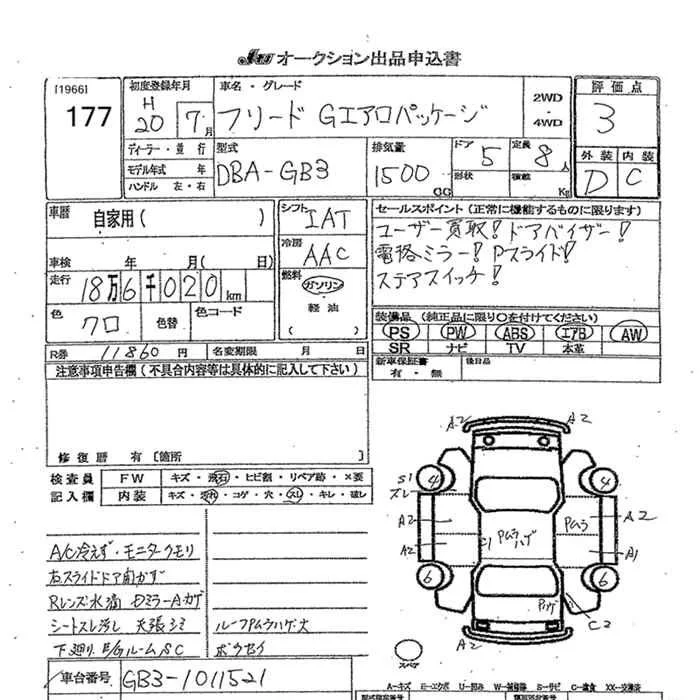 JU オークション出品申込書
[1966]
177
初度登録年月
H
20 7月
車名・グレード
フリード Gエアロパッケージ
2WD
・
4WD
評価点
3
外装 内装
D C
ディーラー・並行
モデル年式 年
ハンドル 左・右
型式
DBA-GB3
排気量
1500
CC
ドア
5
定員
8人
形状
積載
Kg
車歴
自家用( )
車検 年 月( 日)
走行
18万6千020km
色
クロ
色替
色コード
シフト
IAT
冷房
AAC
燃料
ガソリン
軽油
( )
セールスポイント(正常に機能するものに限ります)
ユーザー買取! ドアバイザー!
電格ミラー! Pスライド!
ステアスイッチ!
装備品(純正品に限り○を付けてください)
PS PW ABS エアB AW
SR ナビ TV 本革
新車保証書
有・無
後日品
R券 11860円
名変期限 月 日
注意事項申告欄(不具合内容等は具体的に記入して下さい)
修復歴 有〔箇所 〕
検査員
記入欄
FW
キズ・飛石・ヒビ割・リペア跡・×要
内装
キズ・汚れ・コゲ・穴・スレ・キレ・破レ
A/C冷えず・モニタークモリ
右スライドドア開かず
Rレンズ水滴 DミラーAカゲ
シートスレ汚し 天張シミ
下廻り、E/gルームSC
ルーフPムラハゲ大
ボクセイ
A2 A2
S1
スレ
4 4
A2 A2
A2 A1
Pムラ
Pムラ
ハゲ
6 6
Pハゲ
C2
A2
スペア
車台番号
GB3-1011521
A-キズ E-エクボ U-凹み W-補修跡 S-サビ C-腐食 XX-交換済